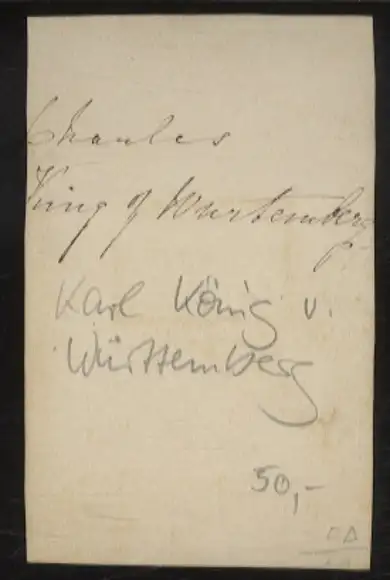 Charles
King of Wurtemberg
Karl König v.
Württemberg
50,-